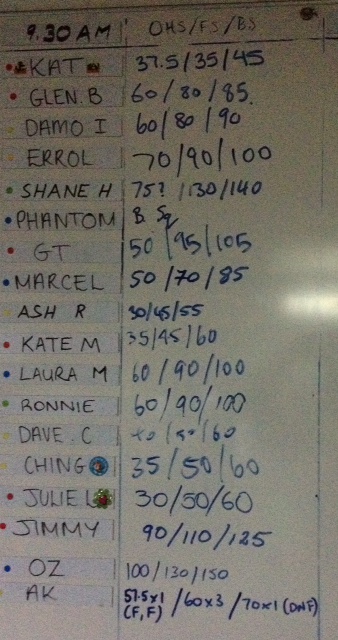 9.30 AM OHS/FS/BS
KAT 37.5/35/45
GLEN.B 60/80/85.
DAMO I 60/80/90
ERROL 70/90/100
SHANE H 75? /130/140
PHANTOM B Sq
GT 50/95/105
MARCEL 50/70/85
ASH R 30/45/55
KATE M 35/45/60
LAURA M 60/90/100
RONNIE 60/90/100
DAVE.C /60
CHING 35/50/60
JULIE L 30/50/60
JIMMY 90/110/125
OZ 100/130/150
AK 57.5x1 /60x3 /70x1 (DNF)
(F,F)